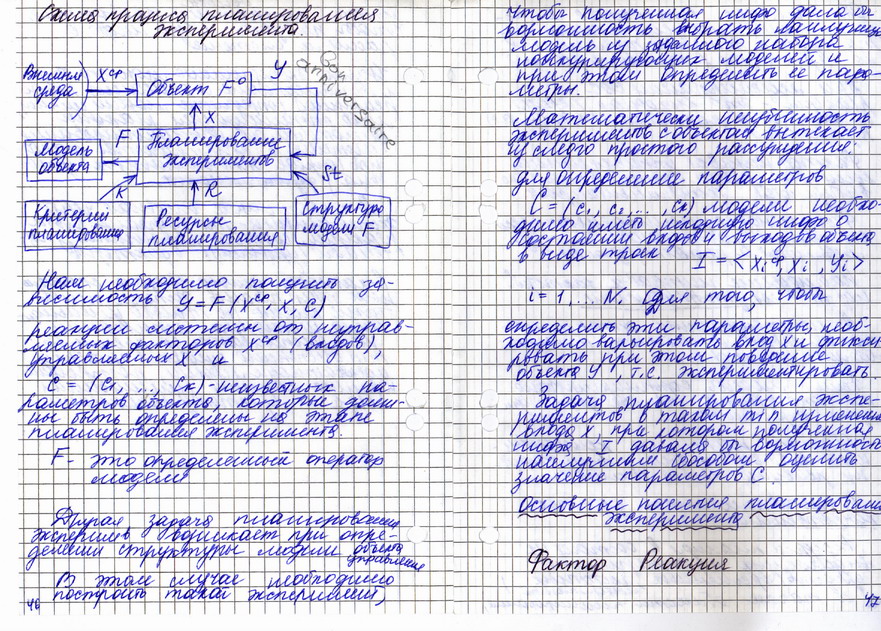 Схема процесса планирования
эксперимента.
Внешняя среда
X^ср
Объект F°
Y
Bon anniversaire
X
Модель объекта
F
Планирование экспериментов
K
R
St
Критерии планирования
Ресурсы планирования
Структура модели F
Нам необходимо получить за-
висимость Y = F (X^ср, X, C)
реакции системы от неуправ-
ляемых факторов X^ср (входов),
управляемых X и
C = (c₁, ..., cк) - неизвестных па-
раметров объекта, которые долж-
ны быть определены на этапе
планирования эксперимента.
F - это определенный оператор
модели
Другая задача планирования
эксперимен возникает при опре-
делении структуры модели объекта
управления
В этом случае необходимо
построить такой эксперимент,
46
чтобы полученная инфо дала бы
возможность выбрать наилучшую
модель из заданного набора
конкурирующих моделей и
при этом определить её пара-
метры.
Математически необходимость
экспериментов с объектом вытекает
из след-го простого рассуждения:
для определения параметров
C = (c₁, c₂, ..., cк) модели необхо-
димо иметь исходную инфо о
состоянии входов и выходов объекта
в виде троек I = <Xᵢ^ср, Xᵢ, Yᵢ>
i = 1, ... N. Для того, чтобы
определить эти параметры, необ-
ходимо варьировать вход X и фикси
ровать при этом поведение
объекта Y, т.е. экспериментировать.
Задача планирования экспе-
риментов в таком изменении
входа X, при котором полученная
инфо I давала бы возможность
наилучшим способом оценить
значение параметров C.
Основные понятия планирования
эксперимента
Фактор Реакция
47